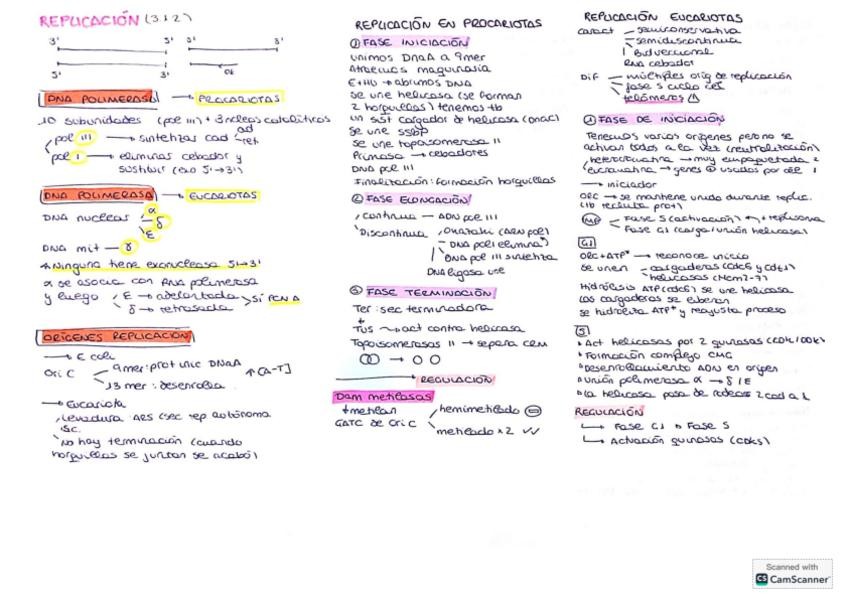 REPLICACIÓN (3.1.2)
3' 5' 3' 5'
5' 3' 5'
DNA POLIMERASA → PROCARIOTAS
10 subunidades (pol III) + 3 nucleos catalíticos
pol III → sintetizas cad ad ret.
pol I → eliminas cebador y
sustituir (exo 5'→3')
DNA POLIMERASA → EUCARIOTAS
DNA nuclear α δ ε
DNA mit → γ
* Ninguna tiene exonucleasa 5'→3'
α se asocia con RNA polimerasa
y luego ε → adelantada
δ → retrasada
Sí PCNA
ORÍGENES REPLICACIÓN
→ E coli
Ori C
9 mer: prot unic DNAA
↑[A-T]
13 mer: desenrolla
→ Eucariota
Levadura: ARS (sec rep autónoma
SC.
No hay terminación (cuando
horquillas se juntan se acabó)
REPLICACIÓN EN PROCARIOTAS
① FASE INICIACIÓN
unimos DnaA a 9mer
Atraemos maquinaria
E + HU → abrimos DNA
Se une helicasa (se forman
2 horquillas) tenemos tb
un sist cargador de helicasa (dnac)
se une SSBP
Se une topoisomerasa II
Primasa → cebadores
DNA pol III
Finalización: formación horquillas
② FASE ELONGACIÓN
Continua → ADN pol III
Discontinua
Okazaki (ARN pol)
DNA pol I elimina
DNA pol III sintetiza
DNA ligasa une
③ FASE TERMINACIÓN
Ter: sec terminadora
+
Tus → act contra helicasa
Topoisomerasas II → separa
→
REGULACIÓN
Dam metilasas
+ metilan
GATC de Ori C
hemimetilado
metilado x 2 ✓✓
REPLICACIÓN EUCARIOTAS
Caract
semiconservativa
semidiscontinua
Bidireccional
RNA cebador
Dif
múltiples orig de replicación
fase S ciclo cel
telómeros
① FASE DE INICIACIÓN
Tenemos varios orígenes pero no se
activan todos a la vez
heterocromatina → muy empaquetada 2
eucromatina → genes usados por cél 1
→ iniciador
ORC → se mantiene unido durante replic.
tb recluta prot
Fase S (activación) replisoma
Fase G1 (carga/unión helicasa)
G1
ORC + ATP → reconoce inicio
Se unen
cargadores (cdc6 y cdt1)
helicasas (Mcm2-7)
Hidrólisis ATP (cdc6) se une helicasa
Los cargadores se liberan
se hidroliza ATP y reajusta proceso
S
Act helicasas por 2 quinasas (CDK/DDK)
Formación complejo CMG
Desenrollamiento ADN en orígen
Unión polimerasa α → δ/ε
La helicasa pasa de rodear 2 cad a 1
REGULACIÓN
Fase G1 o Fase S
Activación quinasas (CDKs)
Scanned with
CS CamScanner